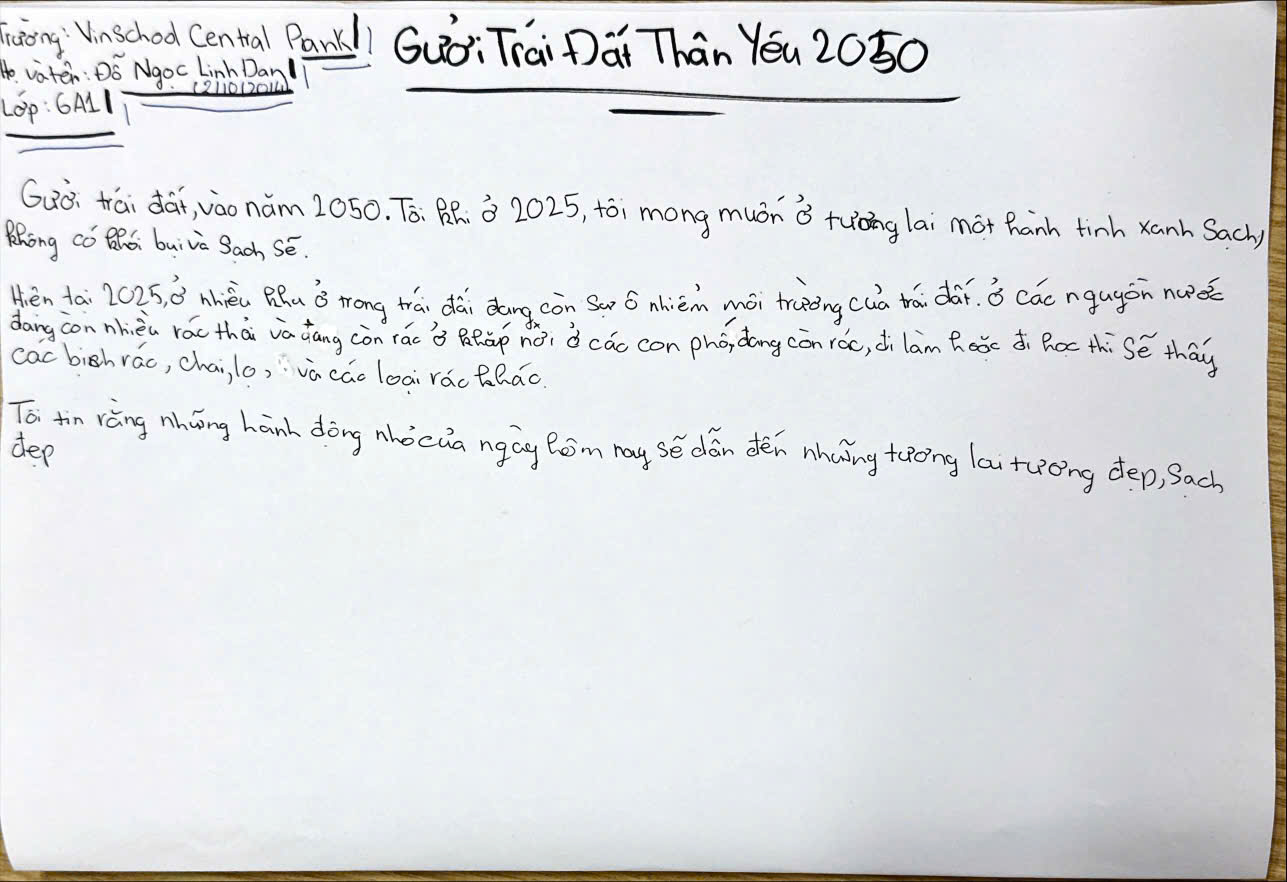 Trường: Vinschool Central Park
Họ và tên: Đỗ Ngọc Linh Đan
(211012014)
Lớp: 6A11
Gưởi Trái Đất Thân Yêu 2050
Gưởi trái đất, vào năm 2050. Tôi khi ở 2025, tôi mong muốn ở tương lai một hành tinh xanh sạch,
không có khói bụi và sạch sẽ.
Hiện tại 2025, ở nhiều khu ở trong trái đất đang còn sự ô nhiễm môi trường của trái đất. ở các nguyồn nước
đang còn nhiều rác thải và đang còn rác ở khắp nơi ở các con phố, đang còn rác, đi làm hoặc đi học thì sẽ thấy
các bịch rác, chai, lọ, và các loại rác khác.
Tôi tin rằng những hành động nhỏ của ngày hôm nay sẽ dẫn đến những tương lai tương đẹp, sạch
đẹp